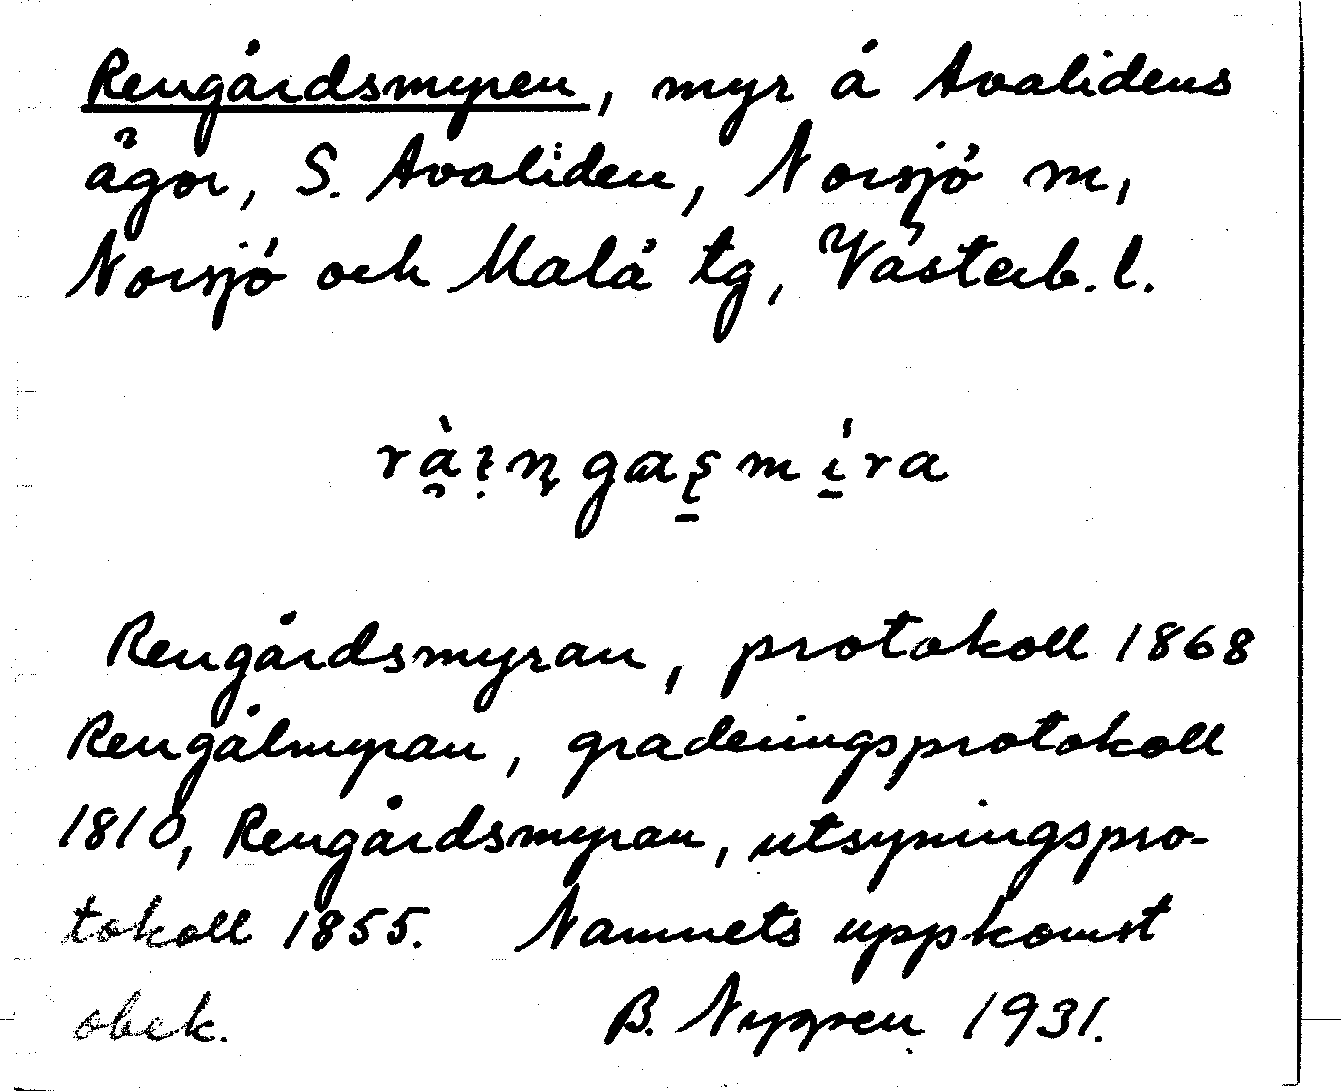 Rengårdsmyren, myr å Avalidens
ägor, S. Avaliden, Norsjö m,
Norsjö och Malå tg, Västerb. l.
rà̯ı̣ŋgaʂmíra
Rengårdsmyran, protokoll 1868
Rengålmyran, graderingsprotokoll
1810, Rengårdsmyran, utsyningspro-
tokoll 1855. Namnets uppkomst
obek. B. Nygren 1931.